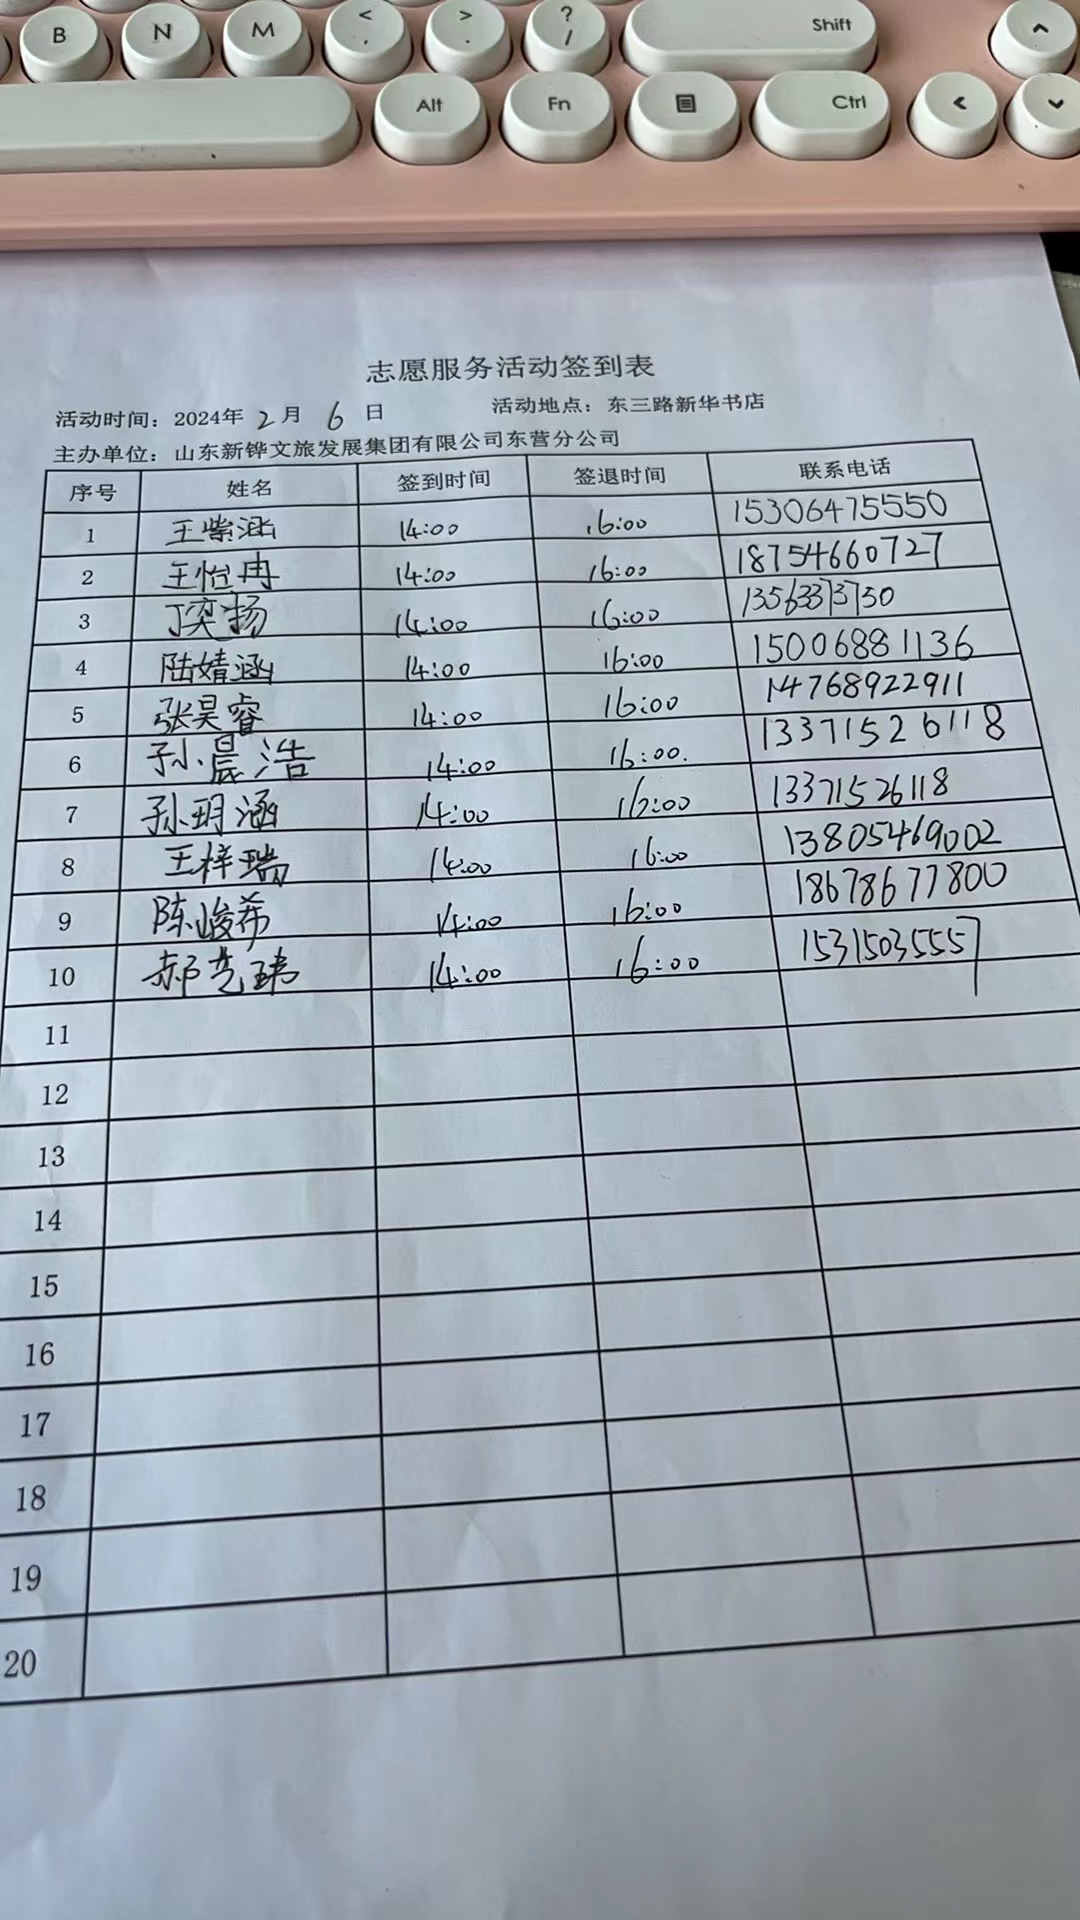 B N M < , > . ? / Shift
Alt Fn Ctrl
志愿服务活动签到表
活动时间：2024年 2 月 6 日 活动地点：东三路新华书店
主办单位：山东新铧文旅发展集团有限公司东营分公司
序号 姓名 签到时间 签退时间 联系电话
1 王紫涵 14:00 16:00 15306475550
2 王怡冉 14:00 16:00 18754660727
3 丁奕扬 14:00 16:00 13563373730
4 陆婧涵 14:00 16:00 15006881136
5 张昊睿 14:00 16:00 14768922911
6 孙晨浩 14:00 16:00. 13371526118
7 孙玥涵 14:00 16:00 13371526118
8 王梓瑞 14:00 16:00 13805469002
9 陈峻希 14:00 16:00 18678677800
10 郝 14:00 16:00 15315035557
11
12
13
14
15
16
17
18
19
20